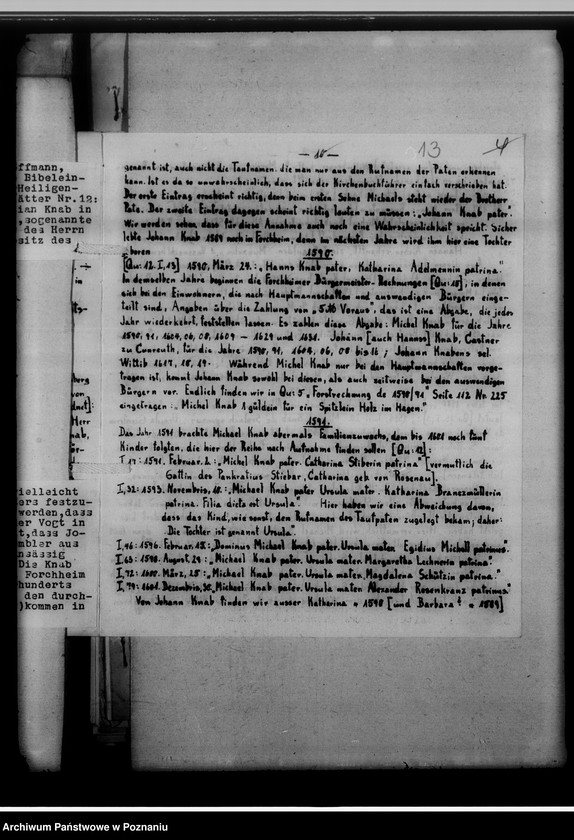 ffmann,
Bibelein-
Heiligen-
ätter Nr.12:
ian Knab in
sogenannte
des Herrn
sitz des
in
berg
von
Herr
nab,
ielleicht
ers festzu-
werden,dass
er Vogt in
t,dass Jo-
mbler aus
nsässig
Die Knab
Forchheim
hunderts
den durch-
kommen in
— 10 — 13 4
genannt ist, auch nicht die Taufnamen. die man nur aus den Rufnamen der Paten erkennen
kann. Ist es da so unwahrscheinlich, dass sich der Kirchenbuchführer einfach verschrieben hat.
Der erste Eintrag erscheint richtig, denn beim ersten Sohne Michaels steht wieder der Bruder
Pate. Der zweite Eintrag dagegen scheint richtig lauten zu müssen: „Johann Knab pater".
Wir werden sehen, dass für diese Annahme auch noch eine Wahrscheinlichkeit spricht. Sicher
lebte Johann Knab 1589 noch in Forchheim, denn im nächsten Jahre wird ihm hier eine Tochter
geboren
1590.
[Qu: 12. I, 13] 1590, März 24.: „Hanns Knab pater, Katharina Addmennin patrina"
In demselben Jahre beginnen die Forchheimer Bürgermeister-Rechnungen [Qu: 15], in denen
sich bei den Einwohnern, die nach Hauptmannschaften und auswendigen Bürgern einge-
teilt sind, Angaben über die Zahlung von „5 Voraus", das ist eine Abgabe, die jedes
Jahr wiederkehrt, feststellen lassen. Es zahlen diese Abgabe: Michel Knab für die Jahre
1590, 91, 1604, 06, 08, 1609 – 1629 und 1631. Johann [auch Hannss] Knab, Castner
zu Cunreuth, für die Jahre 1590, 91, 1604, 06, 08 bis 16; Johann Knabens sel.
Wittib 1617, 18, 19. Während Michel Knab nur bei den Hauptmannschaften vorge-
tragen ist, kommt Johann Knab sowohl bei diesen, als auch zeitweise bei den auswendigen
Bürgern vor. Endlich finden wir in Qu: 5 „Forstrechnung de 1590/91" Seite 112 Nr. 225
eingetragen: „Michel Knab 1 gülden für ein Spitzlein Holz im Hagen."
1591.
Das Jahr 1591 brachte Michael Knab abermals Familienzuwachs, dem bis 1601 noch fünf
Kinder folgten, die hier der Reihe nach Aufnahme finden sollen [Qu: 12]:
I 17: 1591. Februar. 2.: „Michel Knab pater. Catharina Stiberin patrina" [vermutlich die
Gattin des Pankratius Stiebar, Catharina geb von Rosenau].
I, 32: 1593. Novembris, 18.: „Michael Knab pater Ursula mater. Katharina Branczmüllerin
patrina. Filia dicta est Ursula" Hier haben wir eine Abweichung davon,
dass das Kind, wie sonst, den Rufnamen des Taufpaten zugelegt bekam; daher:
Die Tochter ist genannt Ursula".
I, 46: 1596. Februar. 15.: „Dominus Michael Knab pater. Ursula mater. Egidius Michell patrinus".
I, 63: 1598. August. 29.: „Michael Knab pater. Ursula mater. Margaretha Lechnerin patrina".
I, 72: 1600. März, 25.: „Michael Knab pater. Ursula mater, Magdalena Schützin patrina."
I, 79: 1601. Decembris, 30. „Michael Knab pater. Ursula mater Alexander Rosenkranz patrinus."
Von Johann Knab finden wir ausser Katharina * 1590 [und Barbara * 1589]
Archiwum Państwowe w Poznaniu